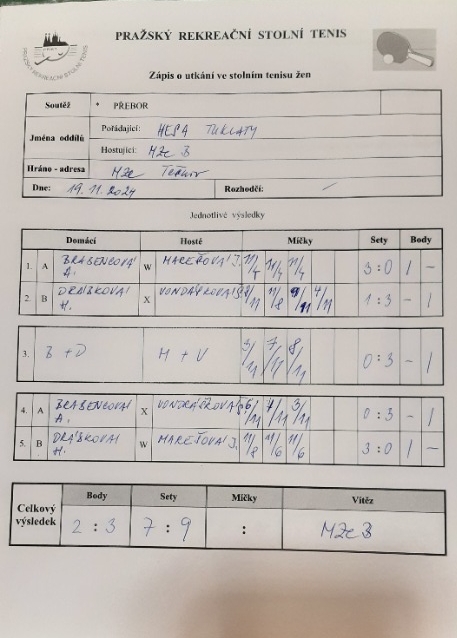 PRAŽSKÝ REKREAČNÍ STOLNÍ TENIS
PRAŽSKÝ REKREAČNÍ STOLNÍ TENIS
Zápis o utkání ve stolním tenisu žen
Soutěž * PŘEBOR
Jména oddílů Pořádající: HESA TUKLATY
Hostující: MZe B
Hráno - adresa MZe Těšnov
Dne: 19.11.2024 Rozhodčí: /
Jednotlivé výsledky
Domácí Hosté Míčky Sety Body
1. A BRABENCOVÁ A. W MAREŠOVÁ J. 11/4 11/4 11/4 3:0 1 -
2. B DRÁBKOVÁ H. X VONDRÁČKOVÁ 11/8 9/11 4/11 1:3 - 1
3. B + D M + V 3/11 7/11 8/11 0:3 - 1
4. A BRABENCOVÁ A. X VONDRÁČKOVÁ 6/11 7/11 3/11 0:3 - 1
5. B DRÁBKOVÁ H. W MAREŠOVÁ J. 11/8 11/6 11/6 3:0 1 -
Celkový výsledek Body Sety Míčky Vítěz
2 : 3 7 : 9 : MZe B